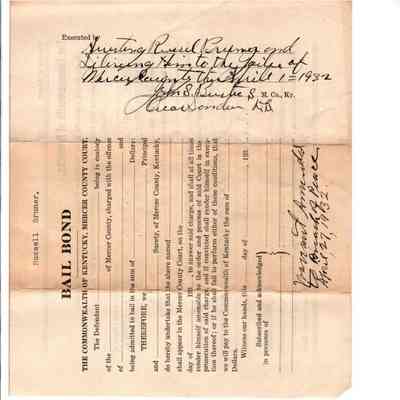 Executed by
Arresting Russel Brumer and
Delivering Him to the Jailer of
Mercer County this April 1st 1932
S. M. Co., Ky.
Oscar
Russell Bruner,
BAIL BOND
THE COMMONWEALTH OF KENTUCKY, MERCER COUNTY COURT:
The Defendant being in custody
of the of Mercer County, charged with the offense
of and
being admitted to bail in the sum of Dollars:
THEREFORE, we Principal
and Surety, of Mercer County, Kentucky,
do hereby undertake that the above named
shall appear in the Mercer County Court, on the
day of 193 , to answer said charge, and shall at all times
render himself amenable to the order and process of said Court in the
prosecution of said charge, and if convicted shall render himself in execu-
tion thereof; or if he shall fail to perform either of these conditions, that
we will pay to the Commonwealth of Kentucky the sum of
Dollars.
Witness our hands, this day of , 193
Subscribed and acknowledged
in presence of
Warrant Amended
to Breach of Peace
April 21, 1932.